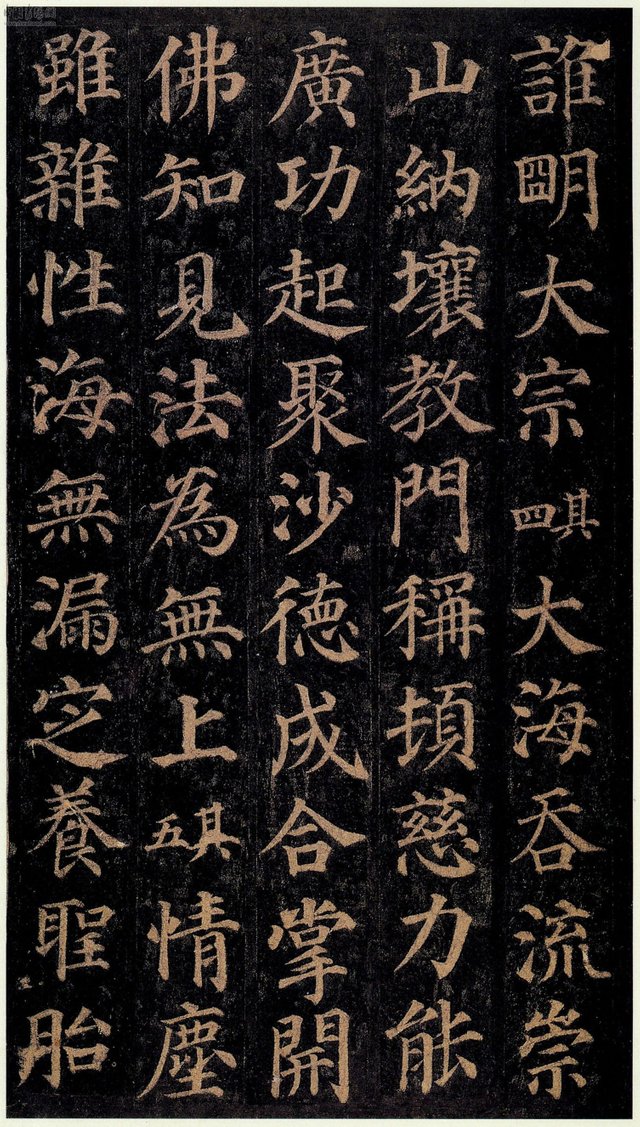 誰明大宗其四大海吞流崇
山納壤教門稱頓慈力能
廣功起聚沙德成合掌開
佛知見法為無上其五情塵
雖雜性海無漏定養聖胎